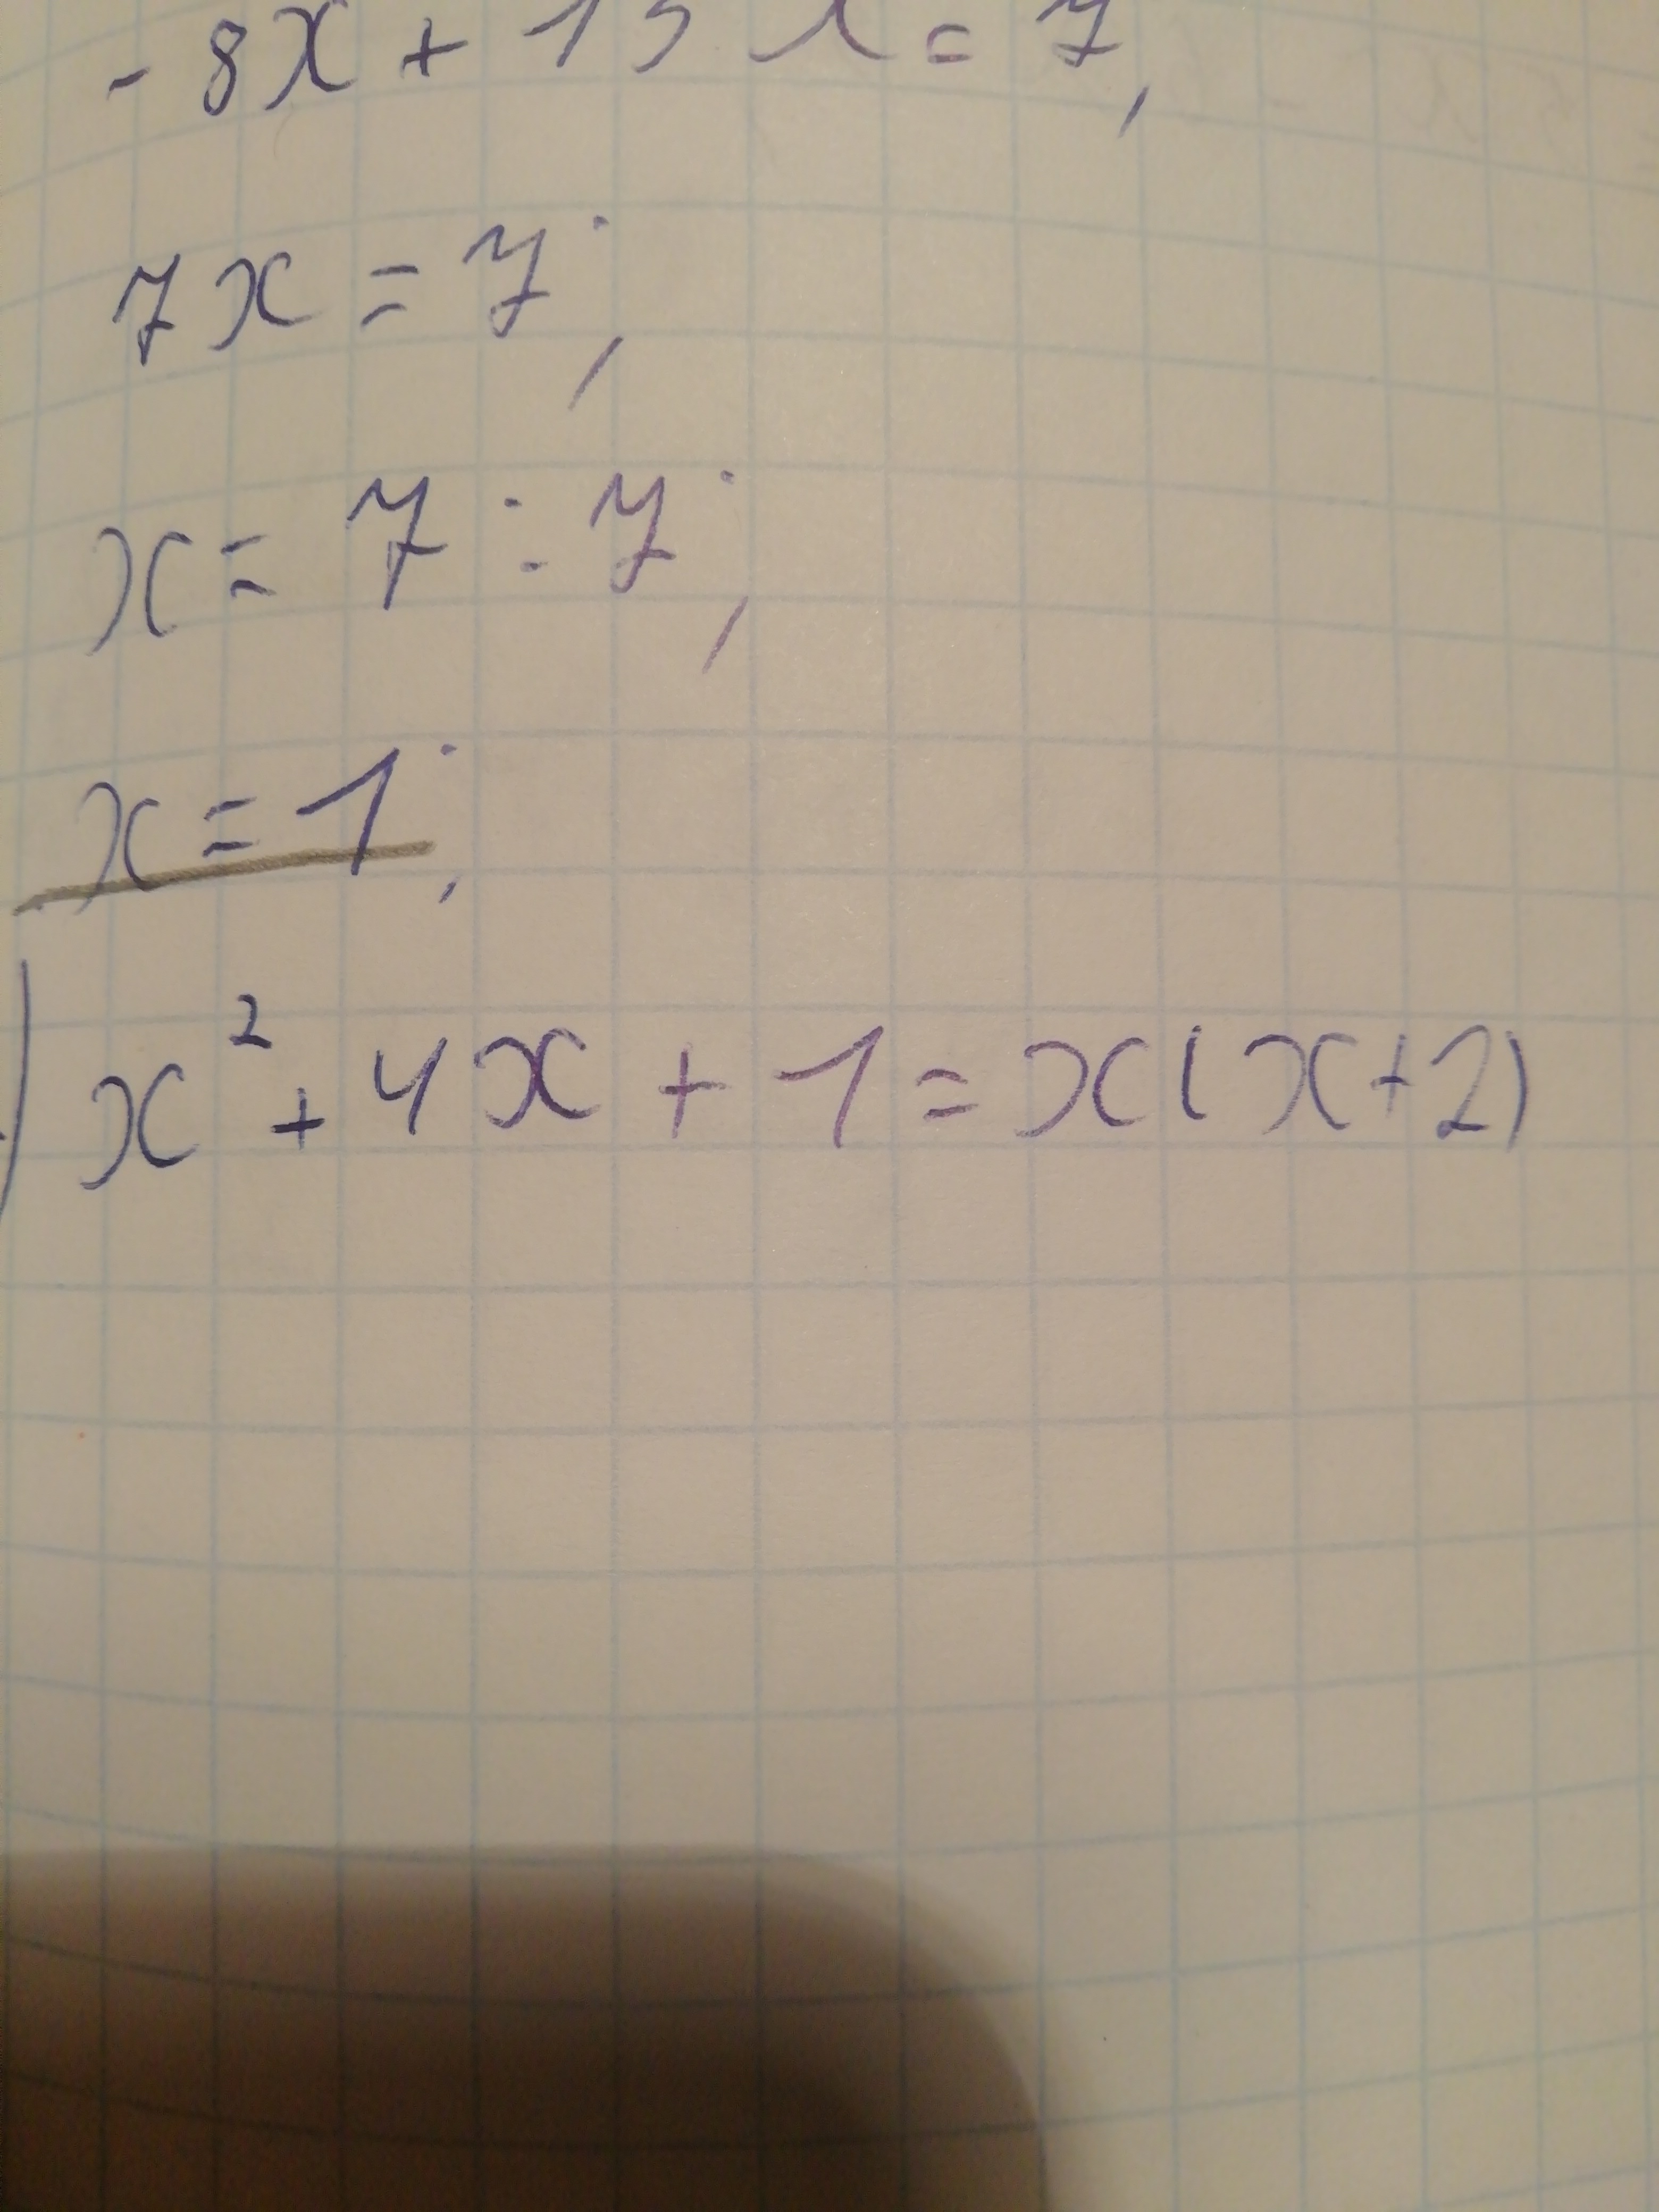 - 8x + 15x = 7;
7x = 7;
x = 7 : 7;
x = 1;
) x² + 4x + 1 = x(x+2)